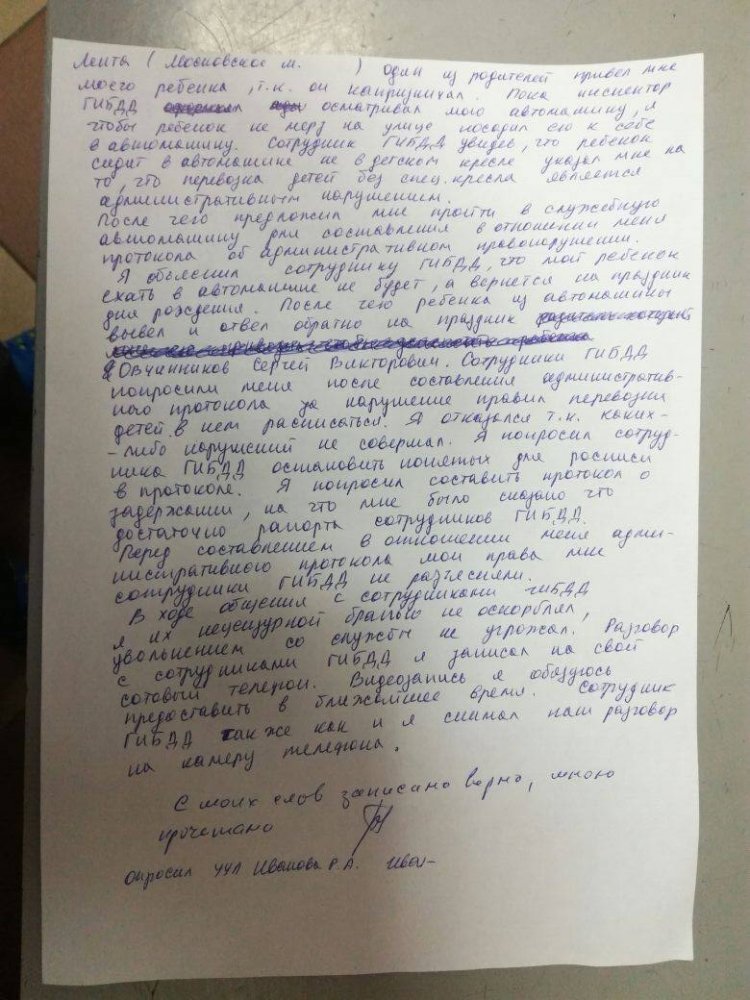 Ленты ( Московское ш. ) один из родителей привел мне
моего ребенка, т.к. он капризничал. Пока инспектор
ГИБДД осматривал мою автомашину, я
чтобы ребенок не мерз на улице посадил его к себе
в автомашину. Сотрудник ГИБДД увидев, что ребенок
сидит в автомашине не в детском кресле указал мне на
то, что перевозка детей без спец. кресла является
административным нарушением.
После чего предложил мне пройти в служебную
автомашину для составления в отношении меня
протокола об административном правонарушении.
Я объяснил сотруднику ГИБДД, что мой ребенок
ехать в автомашине не будет, а вернется на праздник
дня рождения. После чего ребенка из автомашины
вывел и отвел обратно на праздник
Овчинников Сергей Викторович. Сотрудники ГИБДД
попросили меня после составления административ-
ного протокола за нарушение правил перевозки
детей в нем расписаться. Я отказался т.к. каких-
-либо нарушений не совершал. Я попросил сотруд-
ника ГИБДД остановить понятых для росписи
в протоколе. Я попросил составить протокол о
задержании, на что мне было сказано что
достаточно рапорта сотрудников ГИБДД.
Перед составлением в отношении меня адми-
нистративного протокола мои права мне
сотрудники ГИБДД не разъясняли.
В ходе общения с сотрудниками ГИБДД
я их нецензурной бранью не оскорблял,
увольнением со службы не угрожал. Разговор
с сотрудниками ГИБДД я записал на свой
сотовый телефон. Видеозапись я обязуюсь
предоставить в ближайшее время. Сотрудник
ГИБДД также как и я снимал наш разговор
на камеру телефона.
С моих слов записано верно, мною
прочитано
Опросил УУП Иванова Р.А.